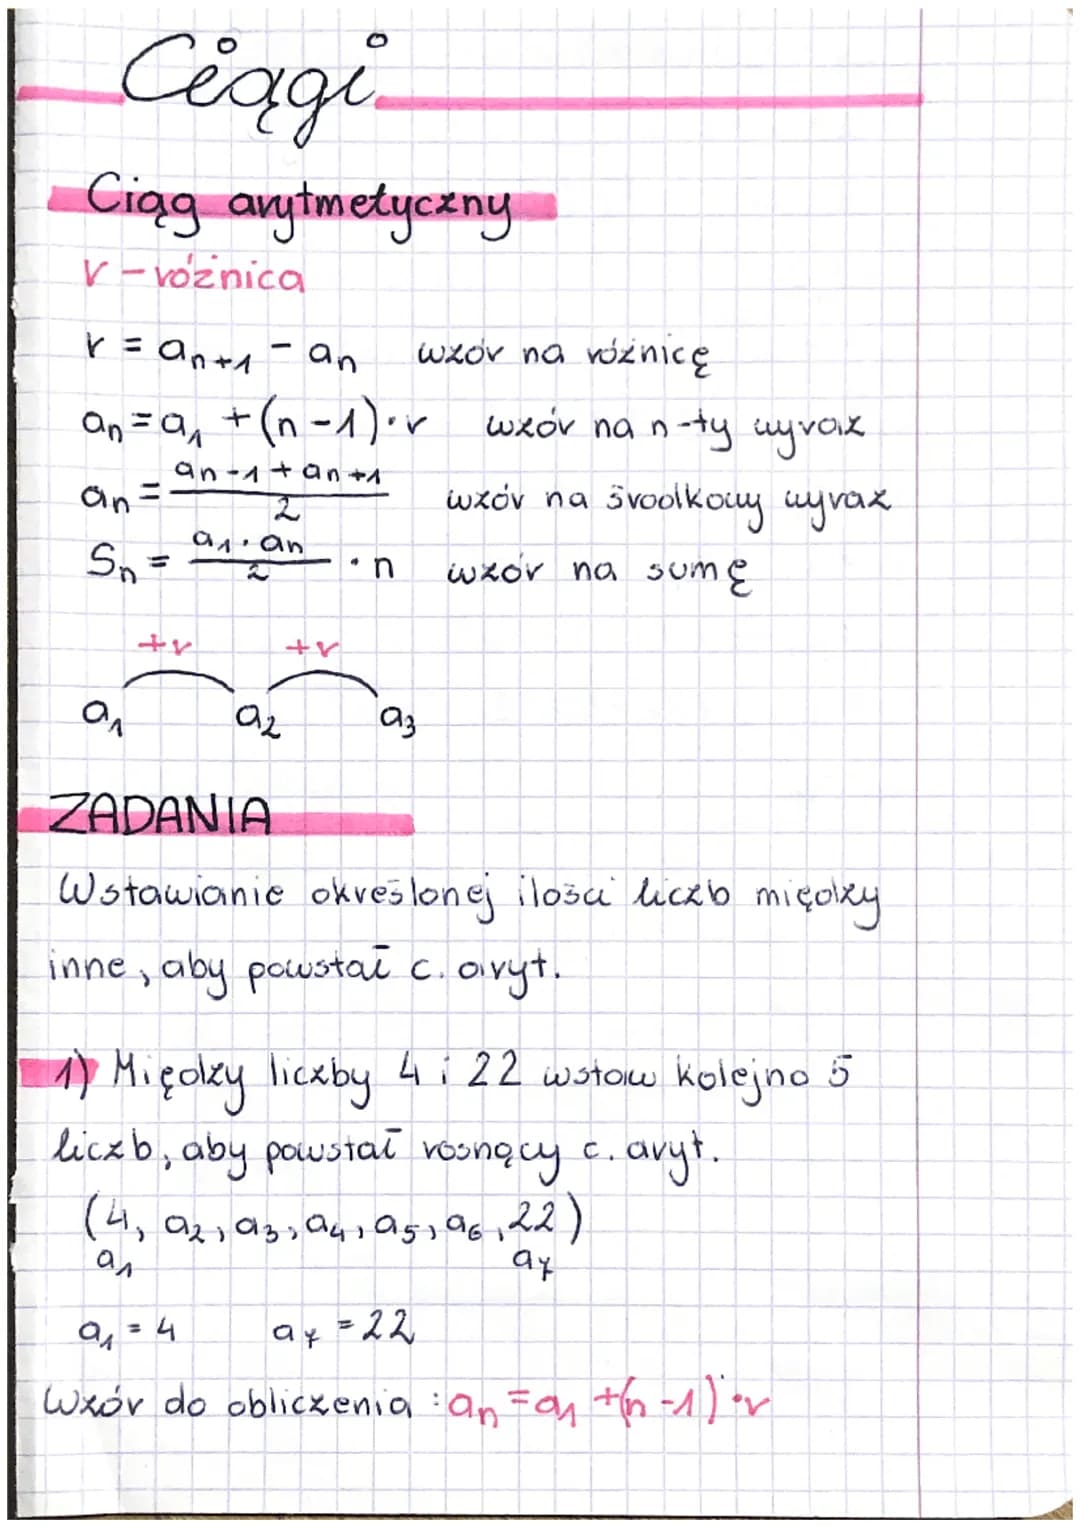 Ciągi
Ciąg arytmetyczny
r - różnica
r = aₙ₊₁ - aₙ wzór na różnicę
aₙ = a₁ + (n-1)·r wzór na n-ty wyraz
aₙ = (aₙ₋₁ + aₙ₊₁)/2 wzór na środkowy wyraz
Sₙ = (a₁·aₙ)/2 · n wzór na sumę
+r +r
a₁ a₂ a₃
ZADANIA
Wstawianie określonej ilości liczb między
inne, aby powstał c. aryt.
1) Między liczby 4 i 22 wstaw kolejno 5
liczb, aby powstał rosnący c. aryt.
(4, a₂, a₃, a₄, a₅, a₆, 22)
a₁ a₇
a₁ = 4 a₇ = 22
Wzór do obliczenia : aₙ = a₁ + (n-1)·r